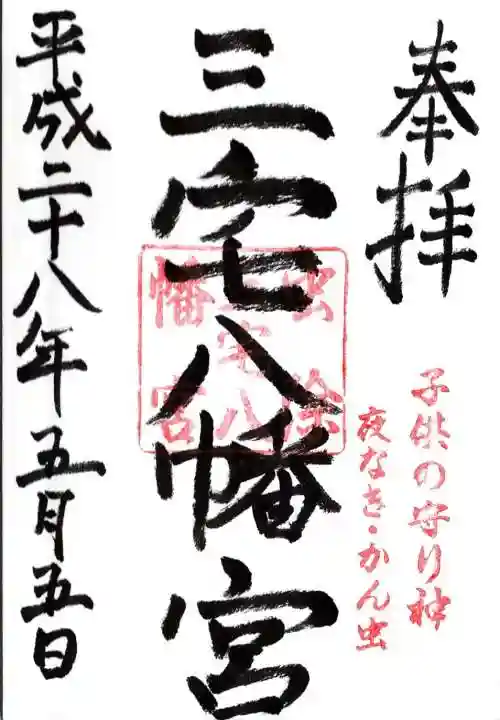 奉拝
子供の守り神
夜なき・かん虫
三宅八幡宮
虫除
三宅八
幡宮
平成二十八年五月五日